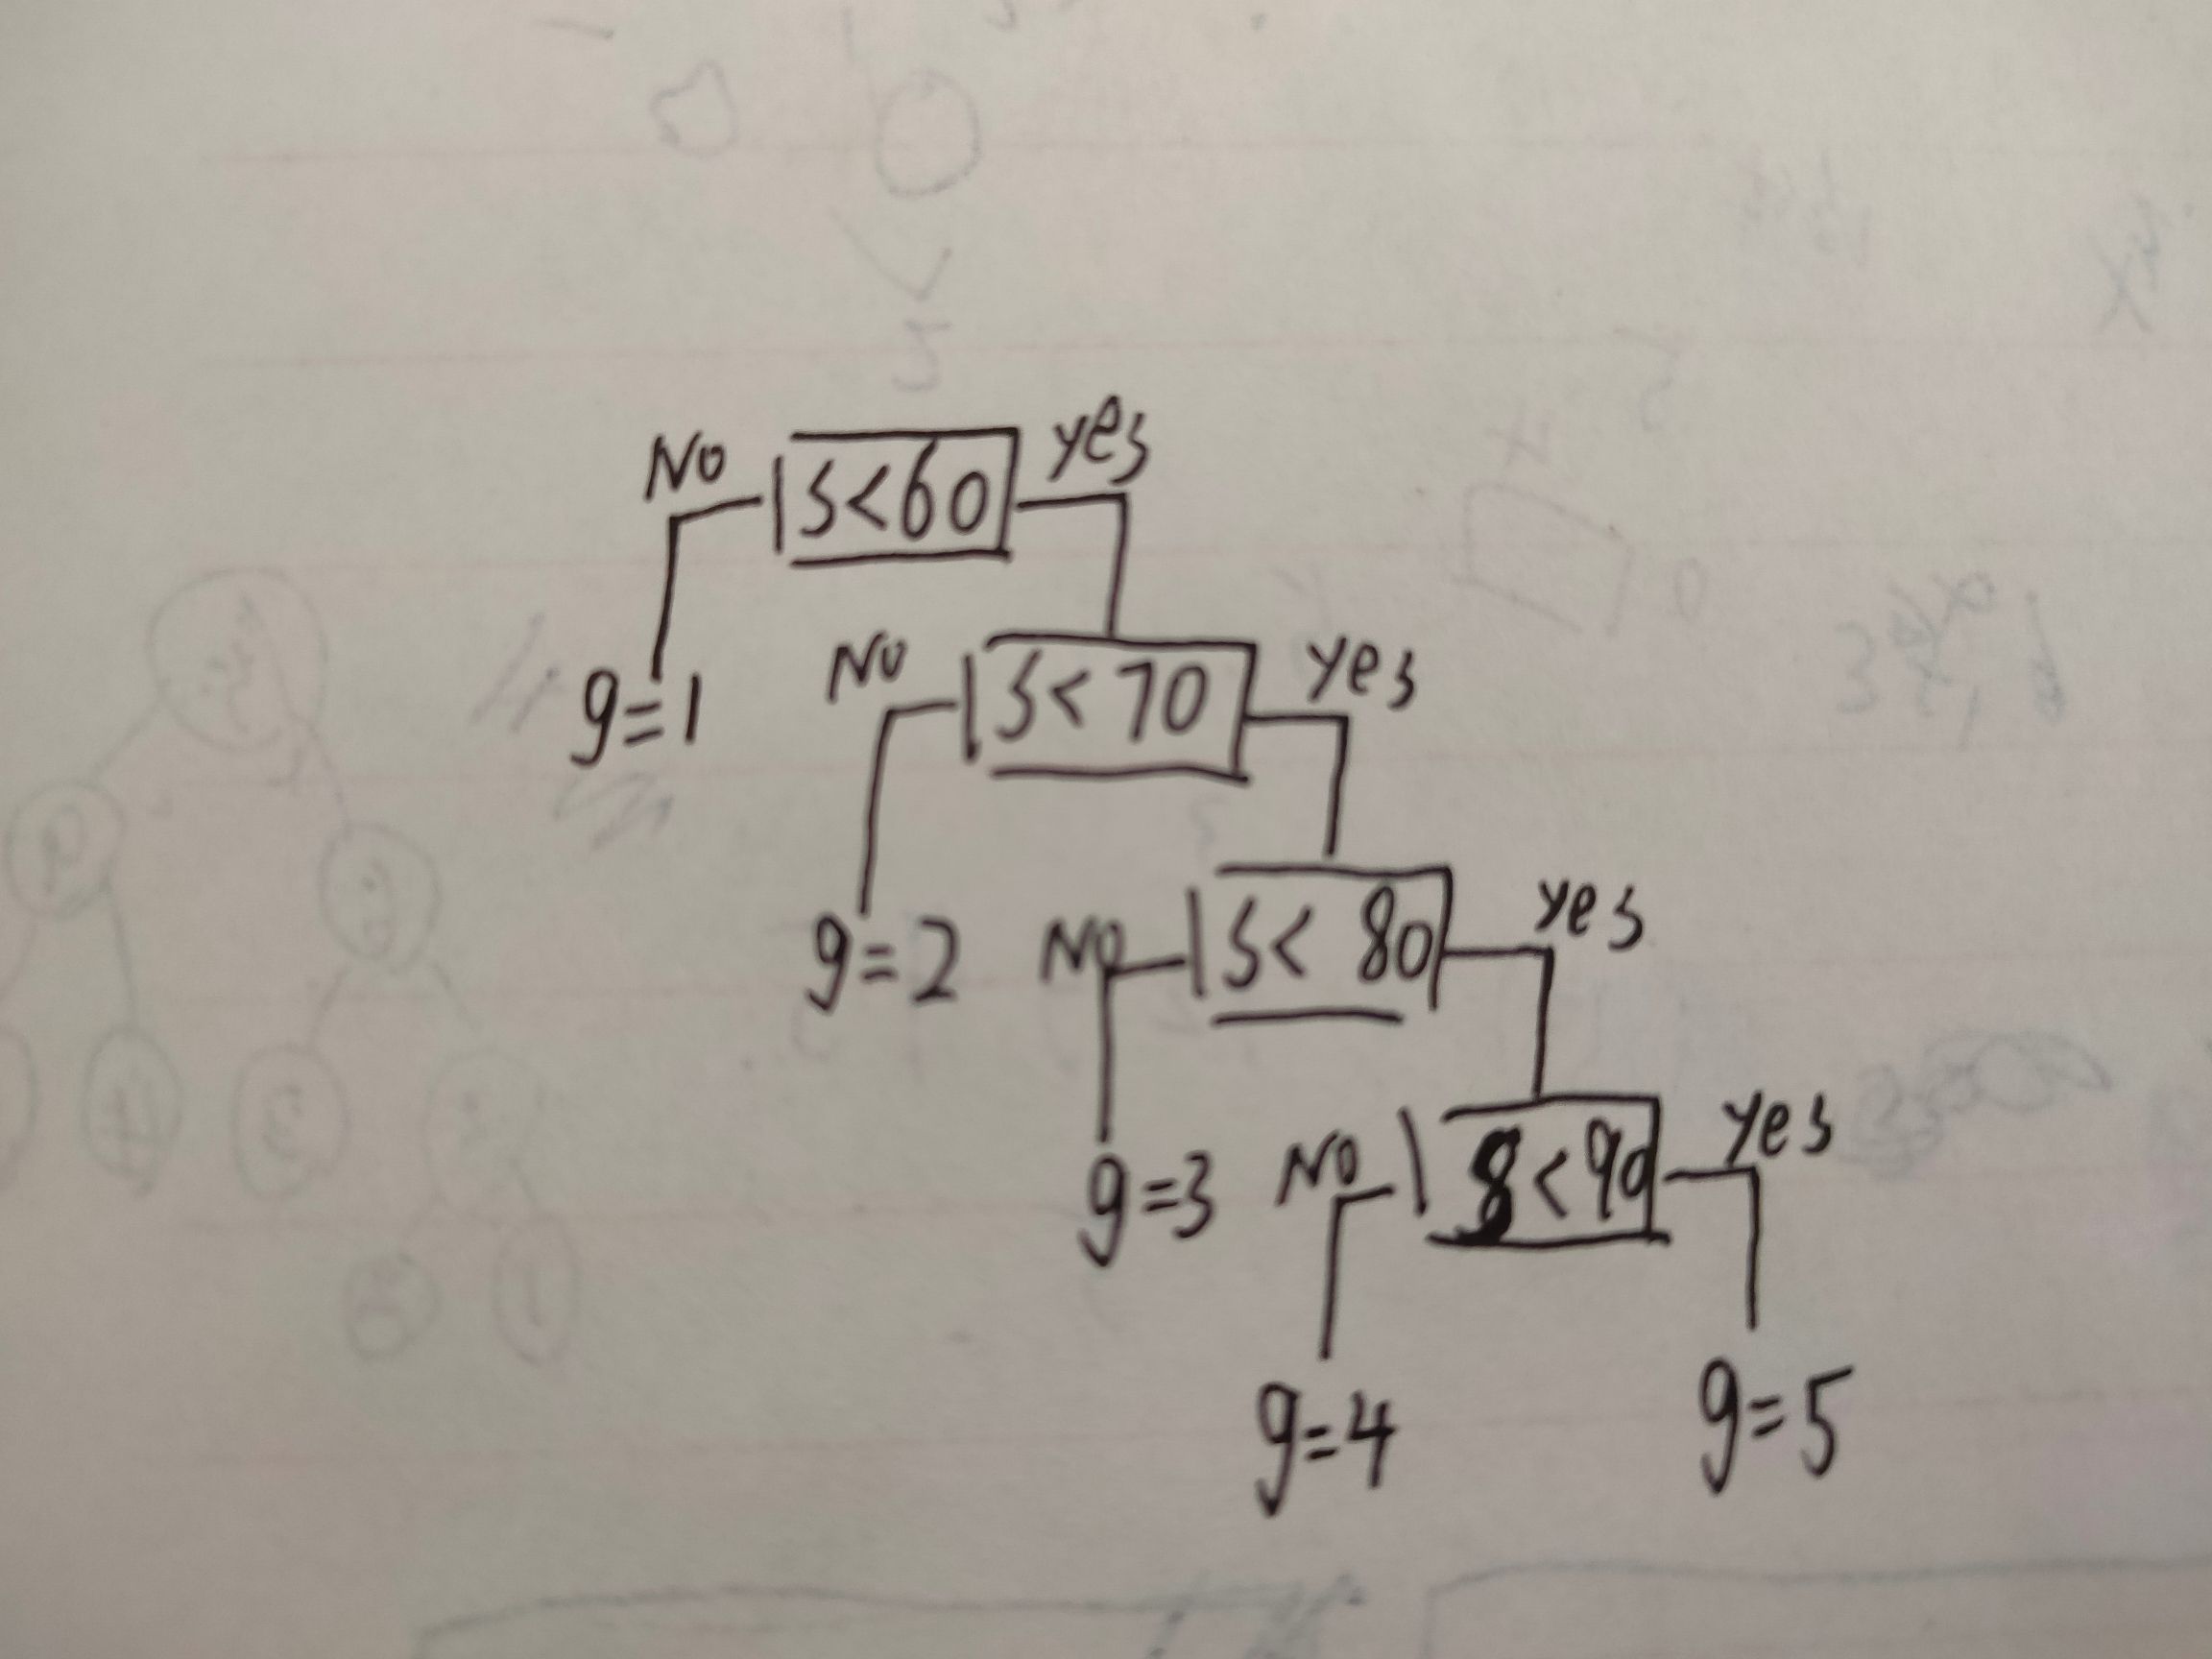 No S<60 yes
g=1 No S<70 yes
g=2 No S< 80 yes
g=3 No 8<90 yes
g=4 g=5